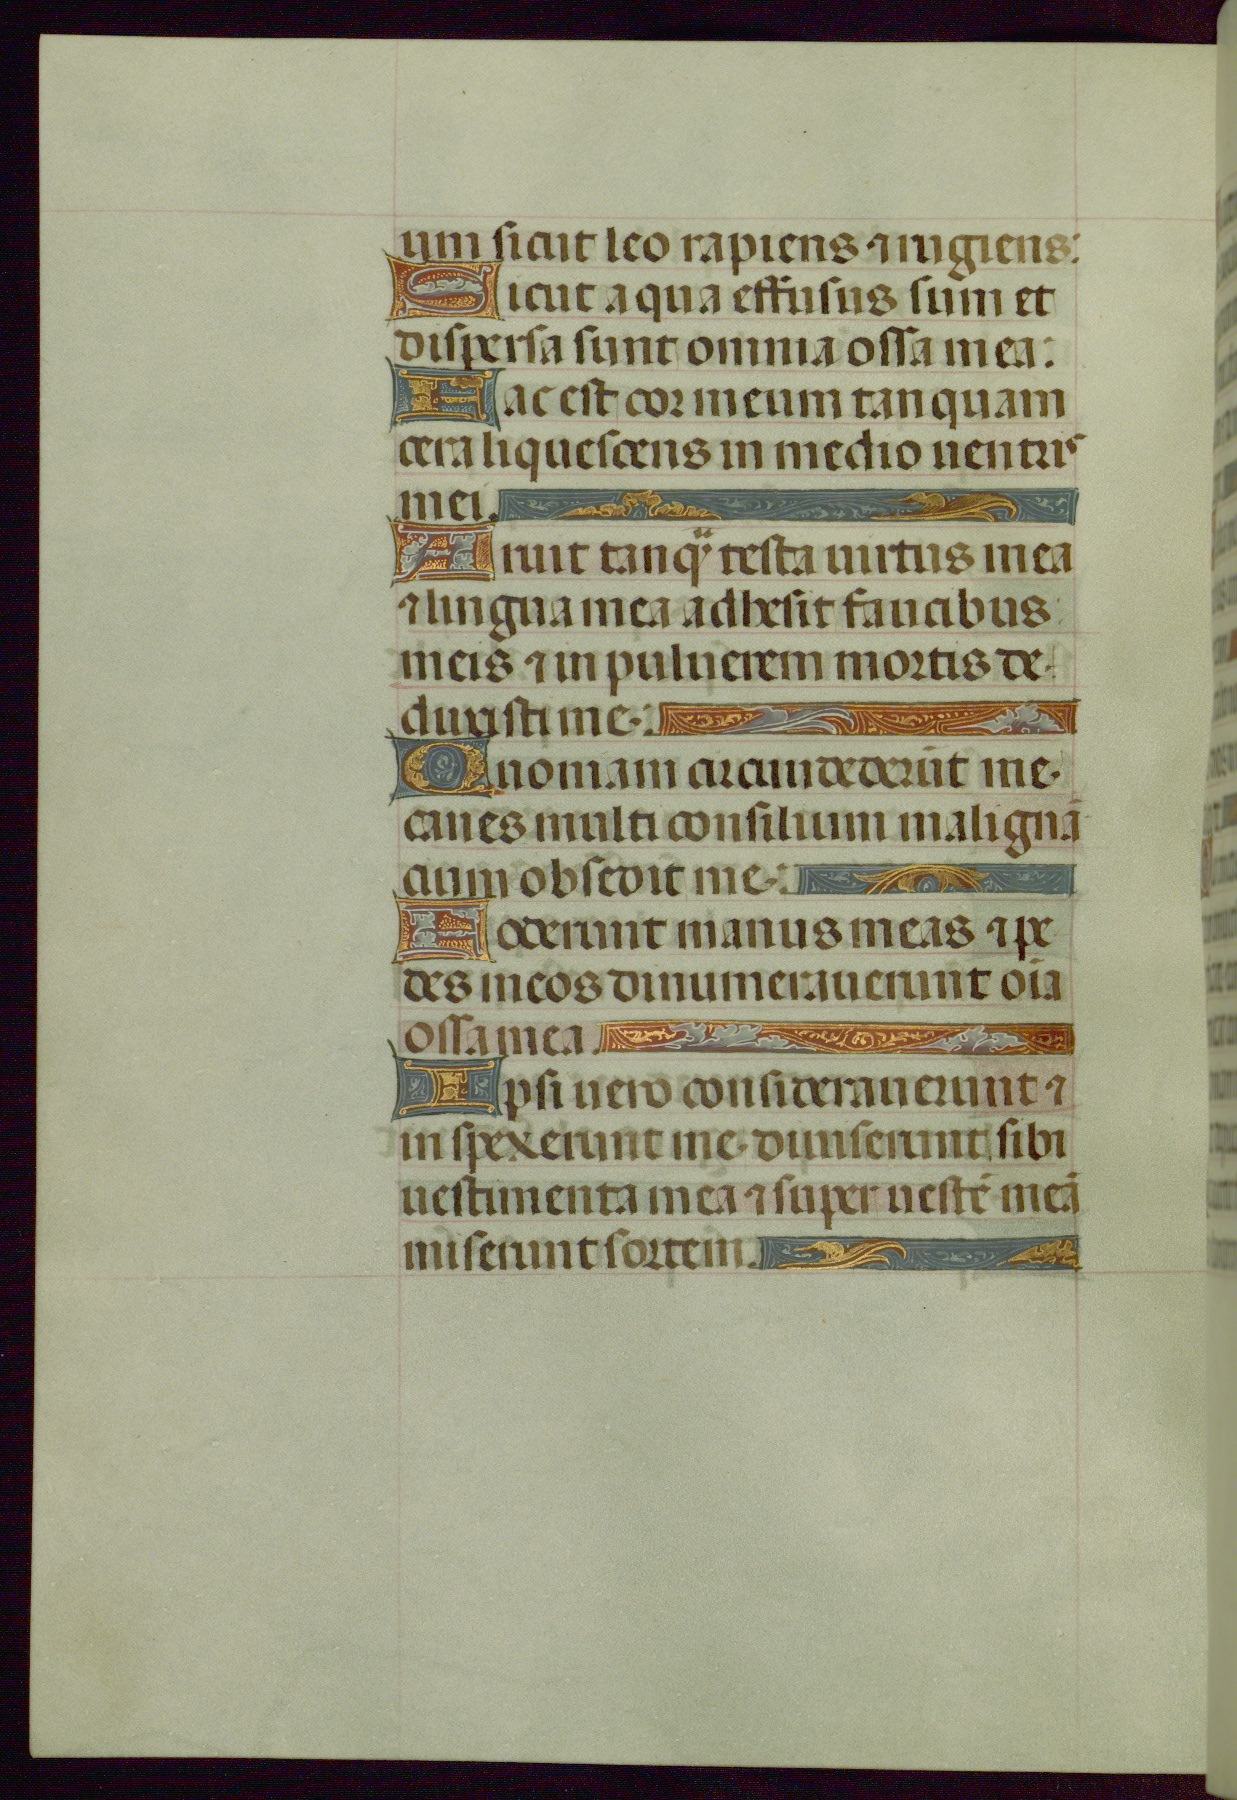 um sicut leo rapiens ⁊ rugiens:
Sicut aqua effusus sum et
dispersa sunt omnia ossa mea:
Fac est cor meum tanquam
cera liquescens in medio uentris
mei.
Aruit tanqͣ testa uirtus mea
⁊ lingua mea adhesit faucibus
meis ⁊ in puluerem mortis de-
duxisti me.
Qnomam circumdederūt me.
canes multi consilium malignā
cium obsedit me.
Foderunt manus meas ⁊ pe
des meos dinumerauerunt oīa
ossa mea.
Ipsi uero considerauerunt ⁊
inspexerunt me. diuiserunt sibi
uestimenta mea ⁊ super uestē meā
miserunt sortem.